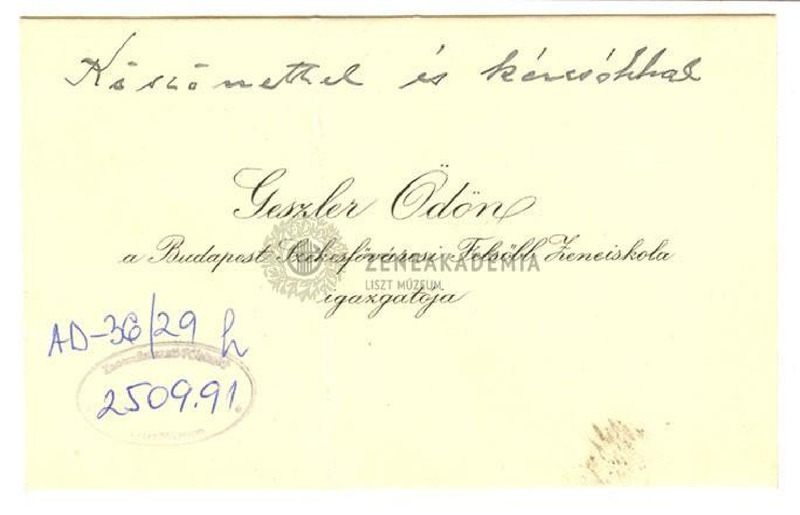 Köszönettel és kézcsókkal
Geszler Ödön
a Budapest Székesfővárosi Felsőbb Zeneiskola
igazgatója
ZENEAKADÉMIA
LISZT MÚZEUM
AD-36/29 h
2509.91